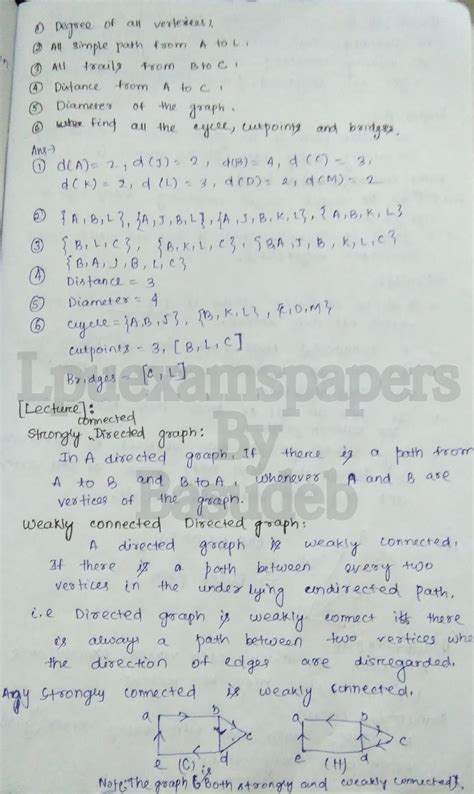 ① Degree of all vertexes?
② All simple path from A to L.
③ All trails from B to C.
④ Distance from A to C.
⑤ Diameter of the graph.
⑥ find all the cycle, cutpoints and bridges.
Ans→
① d(A)= 2, d(J)= 2, d(B)= 4, d(C)= 3,
d(K)= 2, d(L)= 3, d(D)= 2, d(M)= 2
② {A, B, L}, {A, J, B, L}, {A, J, B, K, L}, {A, B, K, L}
③ {B, L, C}, {B, K, L, C}, {B A, J, B, K, L, C}
{B, A, J, B, L, C}
④ Distance = 3
⑤ Diameter = 4
⑥ cycle = {A, B, J}, {B, K, L}, {C, D, M}
cutpoints = 3, [B, L, C]
Bridges = [C, L]
Lpuexamspapers
By
Basudeb
[Lecture]:
connected
Strongly Directed graph:
In A directed graph, If there is a path from
A to B and B to A, whenever A and B are
vertices of the graph.
Weakly connected Directed graph:
A directed graph is weakly connected,
If there is a path between every two
vertices in the underlying undirected path.
i.e Directed graph is weakly connect iff there
is always a path between two vertices whe
the direction of edges are disregarded.
Any strongly connected is weakly connected.
a b c d e (G)
a b c d e (H)
Note: The graph G is Both strongly and weakly connected.